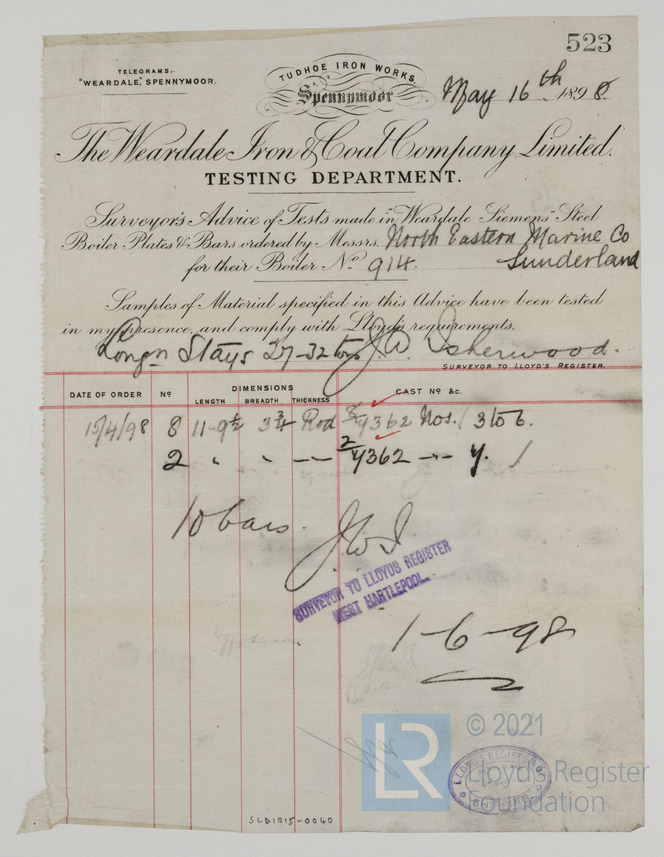 523
TELEGRAMS:-
"WEARDALE," SPENNYMOOR.
TUDHOE IRON WORKS,
Spennymoor
May 16th 1898.
The Weardale Iron & Coal Company Limited.
TESTING DEPARTMENT.
Surveyor's Advice of Tests made in "Weardale Siemens" Steel
Boiler Plates & Bars ordered by Messrs. North Eastern Marine Co
Sunderland
for their Boiler No. 914.
Samples of Material specified in this Advice have been tested
in my presence, and comply with Lloyd's requirements.
Longn Stays 27-32 tons J.W. Isherwood.
SURVEYOR TO LLOYD'S REGISTER.
DATE OF ORDER No DIMENSIONS CAST No &c.
LENGTH BREADTH THICKNESS
15/4/98 8 11-9½ 3¾ Rod 4362 Nos. 3 to 6.
2 " " — 2/4362 — 4.
10 bars.
J.W.I
SURVEYOR TO LLOYDS REGISTER
WEST HARTLEPOOL.
1-6-98
LR
© 2021
Lloyd's Register
Foundation
LLOYD'S REGISTER OF
SHIPPING
SLD1015-0040